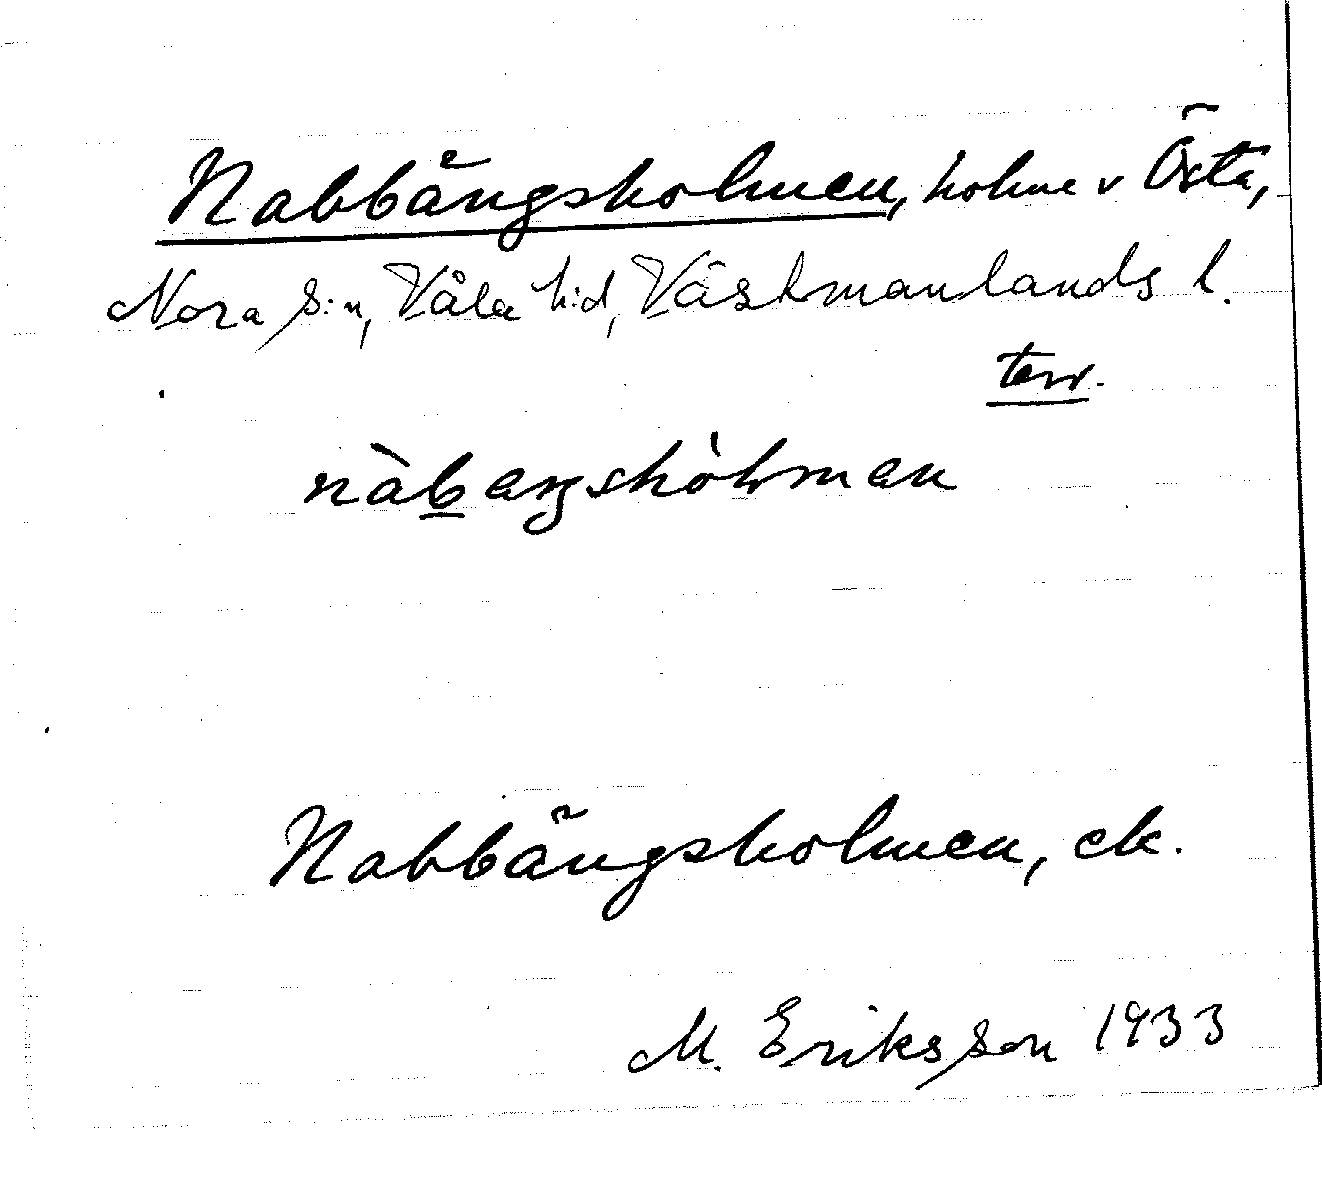 Nabbängsholmen, holme v Östa,
Nora s:n, Våla h:d, Västmanlands l.
terr.
nàbaŋshòlman
Nabbängsholmen, ek.
M. Eriksson 1933